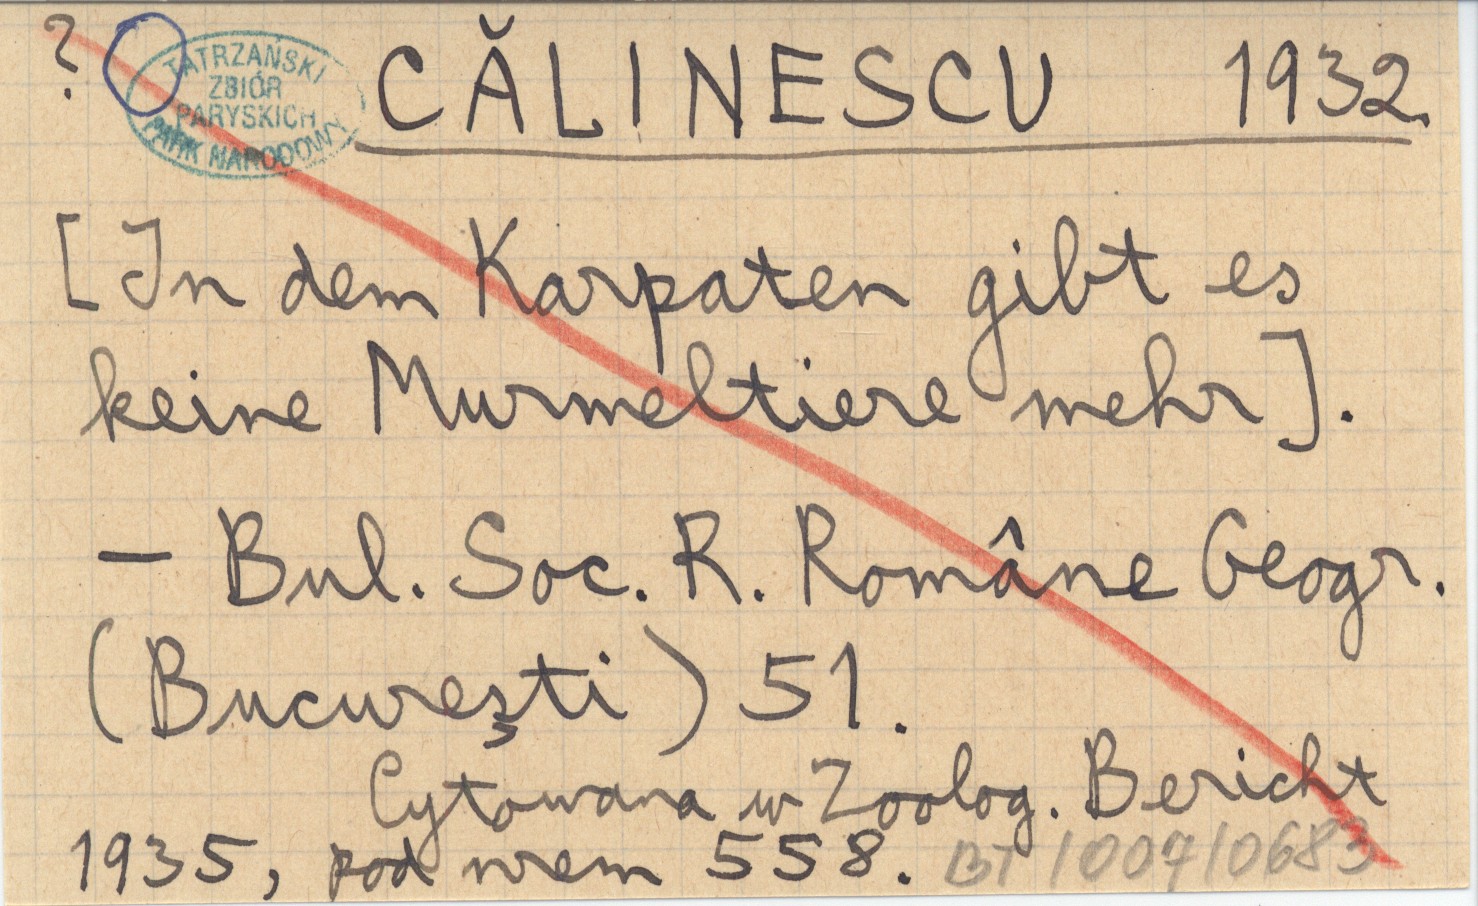 ? CĂLINESCU 1932.
TATRZAŃSKI
ZBIÓR
PARYSKICH
PARK NARODOWY
[In dem Karpaten gibt es
keine Murmeltiere mehr].
— Bul. Soc. R. Române Geogr.
(Bucureşti) 51.
Cytowana w Zoolog. Bericht
1935, pod nrem 558. BT/007/0683